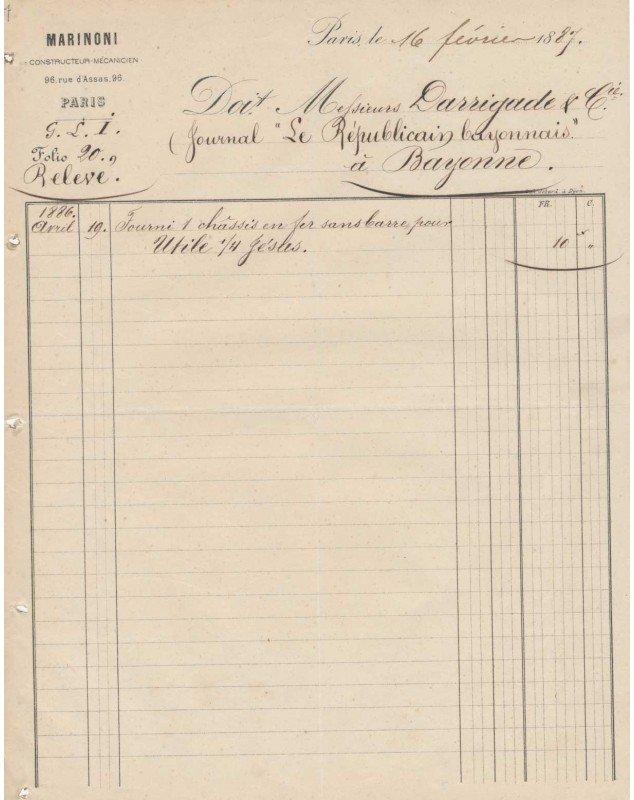 MARINONI
CONSTRUCTEUR-MÉCANICIEN
96, rue d'Assas, 96.
PARIS
G. L. 1.
Folio 20.
Relevé.
Paris, le 16 février 1887.
Doit Messieurs Darrigade & Cie.
(Journal "Le Républicain bayonnais"
à Bayonne.
FR. C.
1886.
Avril 19. Fourni 1 châssis en fer sans barre, pour
Utile 1/4 Jésus. 10 "